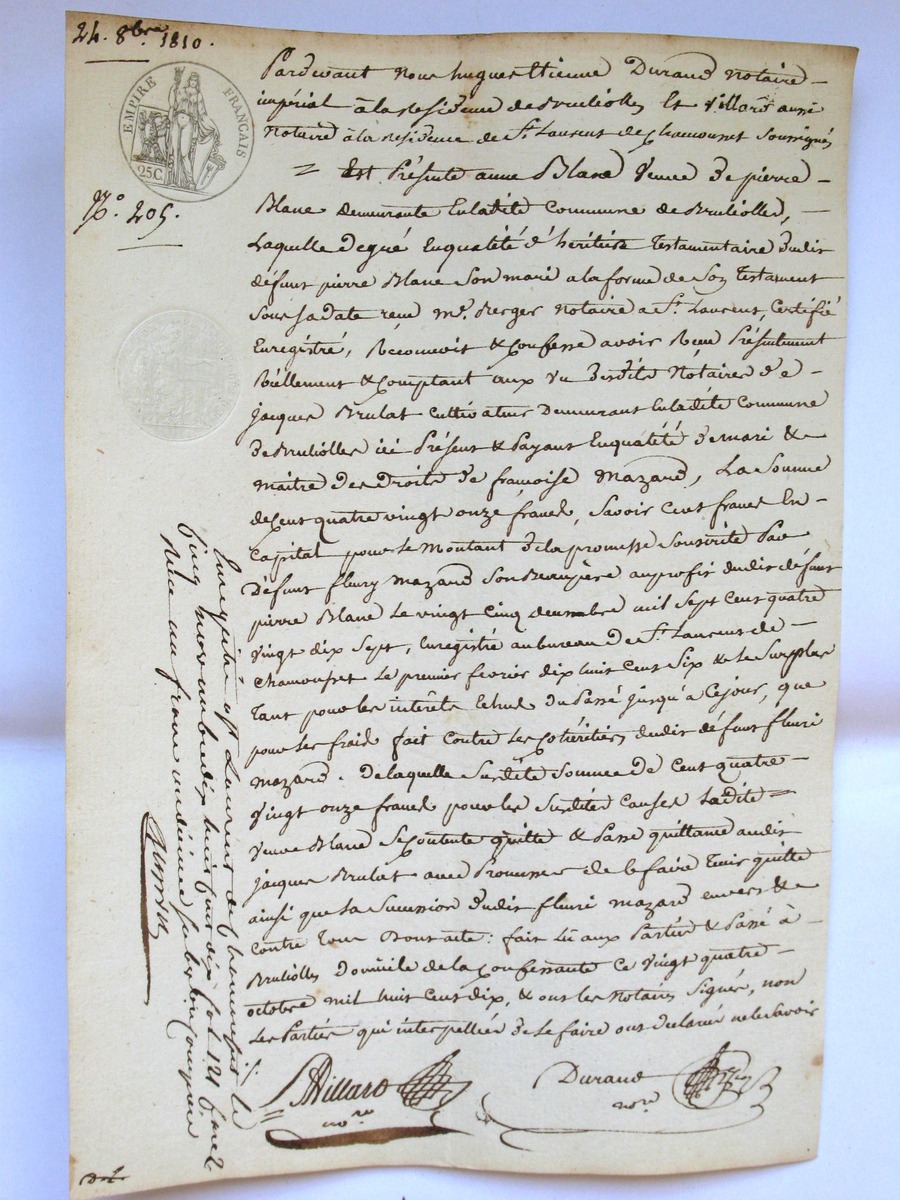 24. 8bre. 1810.
EMPIRE FRANÇAIS
25C.
No. 205.
Pardevant Nous hugues Etienne Durand Notaire
impérial à la Residence de Brulioles Et Villard aussi
Notaire à la Residence de St. Laurent de Chamousset Soussignés
Est Présente anne Blanc Veuve de pierre
Blanc demeurante En ladite Commune de Brulioles,
Laquelle de gré Enqualité d'héritière Testamentaire dudit
défunt pierre Blanc Son mari a la forme de Son Testament
Sous Sa date reçu Me. Berger Notaire a St. Laurent, Certifié
Enregistré, Reconnoit & Confesse avoir Reçu Présentement
Réellement & Comptant aux Vu desdits Notaires de
jacques Brulat Cultivateur Demeurant En ladite Commune
de Brulioles ici Présent & Payant Enqualité de mari &
maitre des Droits de francoise Mazard, La Somme
de Cent quatre vingt onze francs, Savoir Cent francs En
Capital pour le Montant de la promesse Souscrite Par
Défunt fleury Mazard Son Beaupère au profit dudit défunt
pierre Blanc Le vingt Cinq decembre mil Sept Cent quatre
Vingt dix Sept, Enregistré au bureau De St. Laurent de
Chamousset Le premier fevrier dix huit Cent Six & Le Surplus
Tant pour les interêts Echus du Passé jusqu'à Ce jour, que
pour les frais fait Contre les Cohéritiers dudit défunt fleuri
Mazard. De laquelle Susdite Somme De Cent quatre
Vingt onze francs pour les Susdites Causes Ladite
Veuve Blanc Se Contente quitte & Passe quittance audit
jacques Brulat avec Promesse de le faire Tenir quitte
ainsi que la Succession dudit fleuri Mazard envers &
Contre Tous : fait Lu aux Parties & Passé à
Brulioles Domicile de la Confessante Ce vingt quatre
octobre mil huit Cent dix, & ont les Notaires Signés, non
Les Parties qui interpellées de le faire ont déclaré ne le Savoir
Villard
nore
Durand
nore
Enregistré a St Laurent de Chamousset le
Cinq novembre dix huit Cent dix fol. 121
Reçu un franc un dixième